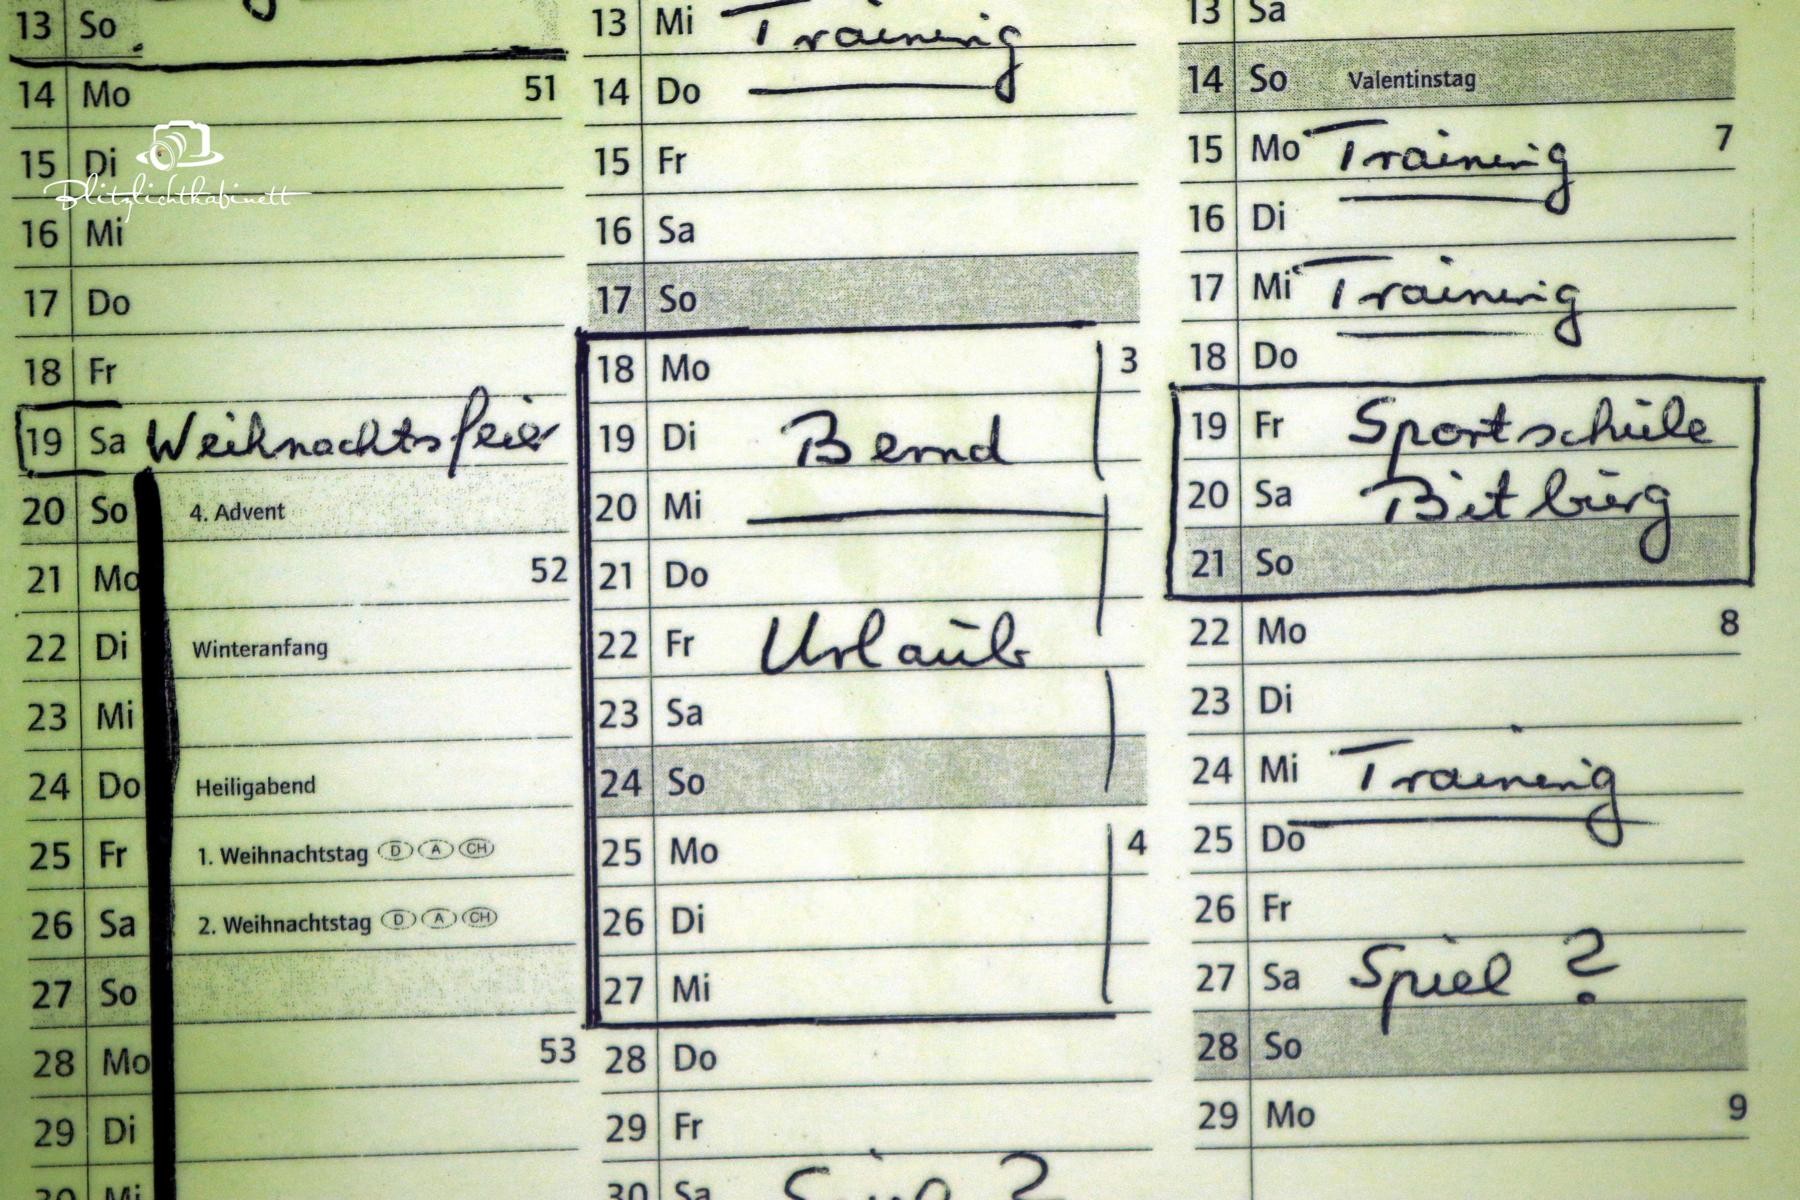 13 So
14 Mo 51
15 Di
Blitzlichtkabinett
16 Mi
17 Do
18 Fr
19 Sa Weihnachtsfeier
20 So 4. Advent
21 Mo 52
22 Di Winteranfang
23 Mi
24 Do Heiligabend
25 Fr 1. Weihnachtstag D A CH
26 Sa 2. Weihnachtstag D A CH
27 So
28 Mo 53
29 Di
30 Mi
13 Mi Training
14 Do
15 Fr
16 Sa
17 So
18 Mo 3
19 Di Bernd
20 Mi
21 Do
22 Fr Urlaub
23 Sa
24 So
25 Mo 4
26 Di
27 Mi
28 Do
29 Fr
30 Sa Spiel ?
13 Sa
14 So Valentinstag
15 Mo Training 7
16 Di
17 Mi Training
18 Do
19 Fr Sportschule
20 Sa Bitburg
21 So
22 Mo 8
23 Di
24 Mi Training
25 Do
26 Fr
27 Sa Spiel ?
28 So
29 Mo 9